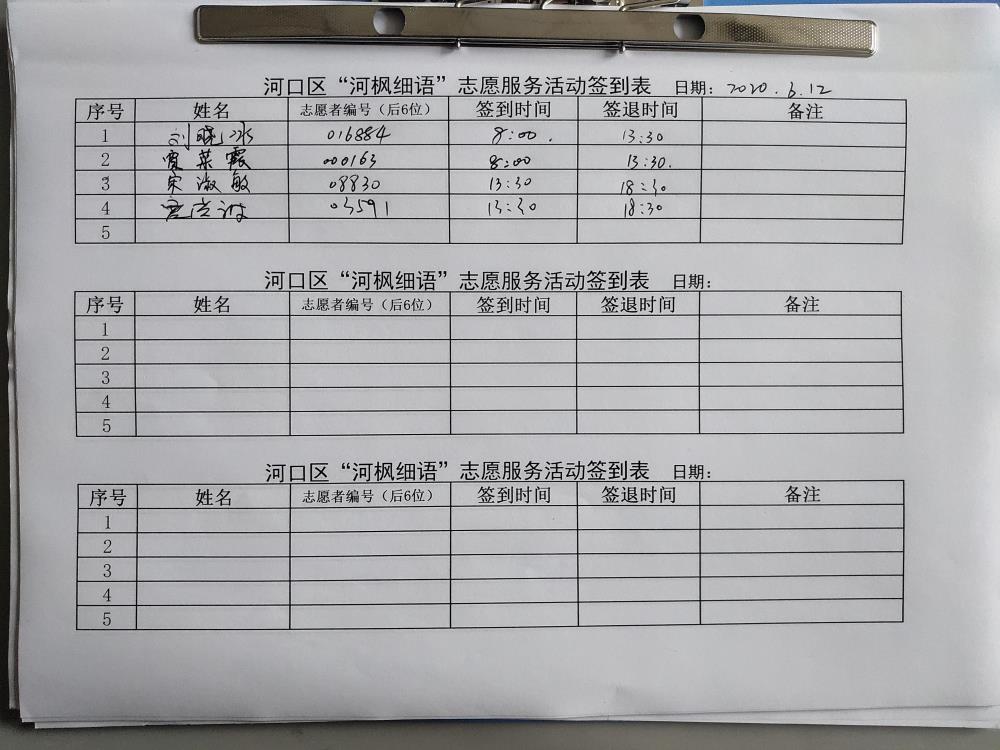 河口区“河枫细语”志愿服务活动签到表 日期：2020.6.12
序号 姓名 志愿者编号（后6位） 签到时间 签退时间 备注
1 刘晓冰 016884 8:00. 13:30
2 贾荣霞 000163 8:00 13:30.
3 宋淑敏 08830 13:30 18:30
4 03591 13:30 18:30
5
河口区“河枫细语”志愿服务活动签到表 日期：
序号 姓名 志愿者编号（后6位） 签到时间 签退时间 备注
1
2
3
4
5
河口区“河枫细语”志愿服务活动签到表 日期：
序号 姓名 志愿者编号（后6位） 签到时间 签退时间 备注
1
2
3
4
5